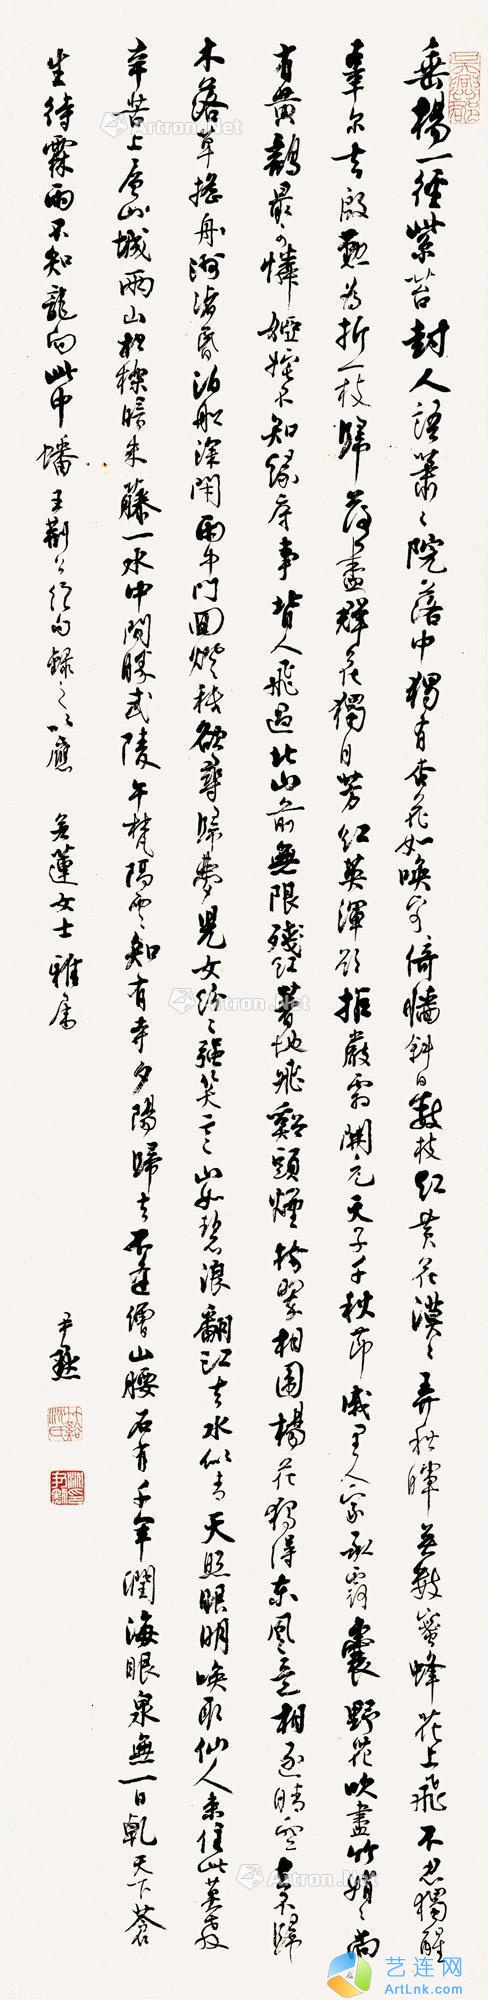 垂楊一徑紫苔封人語蕭々院落中獨有杏花如喚客倚牆斜日數枝紅黃花漠々弄秋暉無數蜜蜂花上飛不忍獨醒
辜尔去殷勤為折一枝歸荷盡群花獨自芳紅英渾欲拒嚴霜開元天子千秋節戚里人家承露囊野花吹盡竹娟々尚
有黃鸝最可憐婭姹不知緣底事背人飛過北山前無限殘紅著地飛谿頭煙樹翠相圍楊花獨得東風意相逐晴空去不歸
木落草搖洲渚昏泊船深閉雨中門回燈只欲尋歸夢兒女紛々強笑言山如碧浪翻江去水似青天照眼明喚取仙人來住此莫教
辛苦上層城兩山松櫟暗朱藤一水中間勝武陵午梵隔雲知有寺夕陽歸去不逢僧山腰石有千年潤海眼泉無一日乾天下蒼
生待霖雨不知龍向此中蟠王荊公絕句錄之以應 若蓮女士雅屬
尹默
Artron.Net
艺连网
ArtLnk.Com